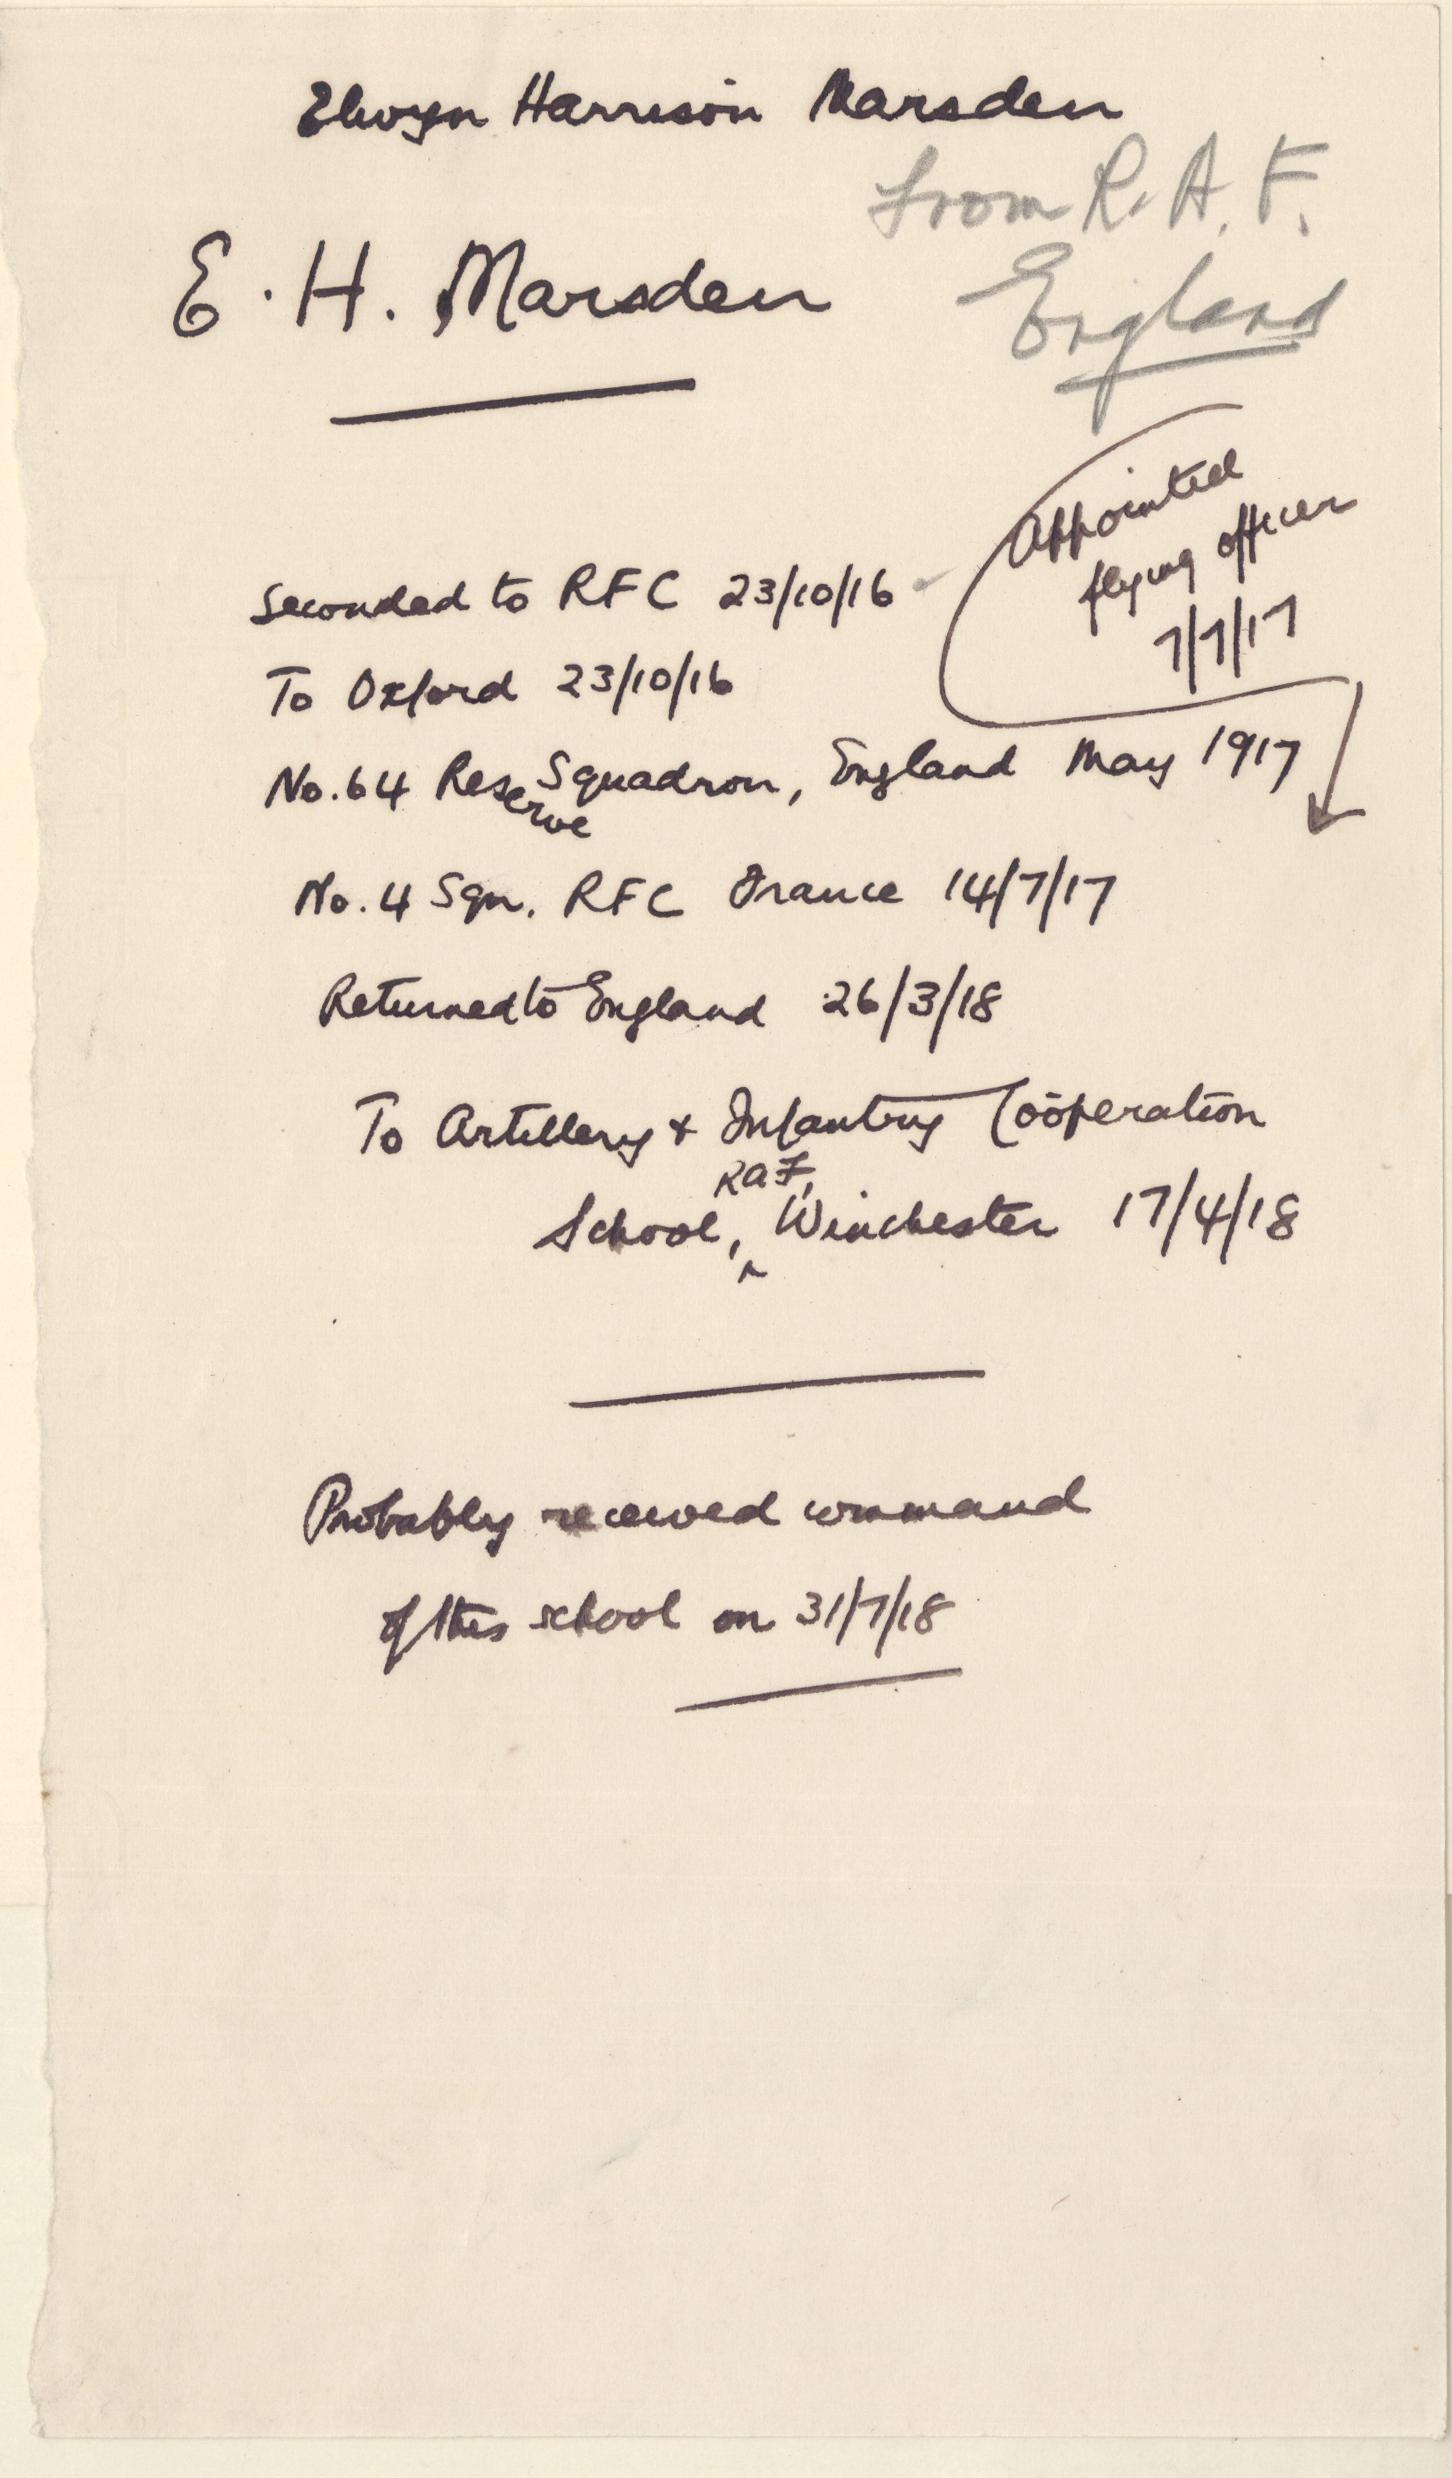 Elwyn Harrison Marsden
From R. A. F.
England
E. H. Marsden
Appointed
flying officer
7/7/17
Seconded to RFC 23/10/16
To Oxford 23/10/16
No. 64 Reserve Squadron, England May 1917
No. 4 Sqn. RFC France 14/7/17
Returned to England 26/3/18
To Artillery + Infantry Coöperation
School, RAF, Winchester 17/4/18
Probably received command
of this school on 31/7/18